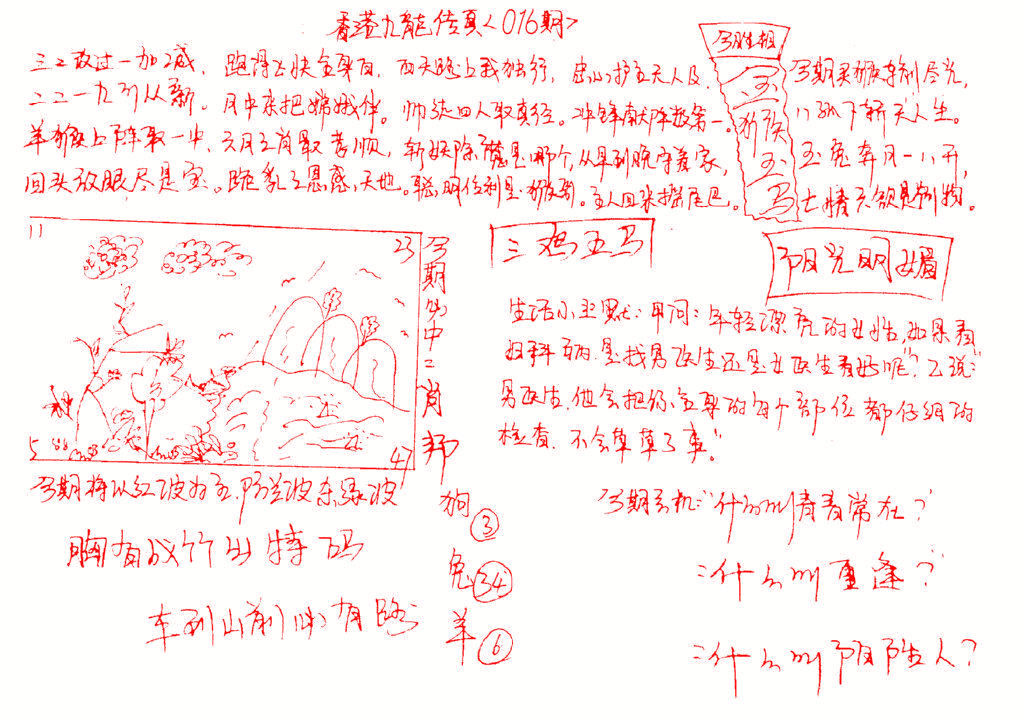 香港九龙传真<016期>
三三改过一加减,跑得飞快全身白,西天路上我独行,忠心护主天人及,
二二一九引从新。月中亲把嫦娥伴。帅徒四人取真经。冲锋献阵报第一。
羊猴上阵取一中,六月三肖最孝顺,斩妖除魔是哪个,从早到晚守着家,
回头放眼尽是宝。跪乳之恩感天地。聪明伶利是猴哥。主人回来摇尾巴。
写胜相
玉猴玉马
八
玉兔奔月一八开,
11
23
5
47
今期必中二肖
三鸡五马
阳光明媚
生活小幽默:甲问:年轻漂亮的女性,如果看
妇科病,是找男医生还是女医生看好呢?乙说:
男医生,他会把你全身的每个部位都仔细的
检查,不会草草了事。"
今期将以红波为主,防兰波杀绿波
胸有成竹出特码
车到山前必有路
狗③
兔34
羊⑥
今期玄机:"什么叫青春常在?
二:什么叫重逢?
三:什么叫阴阳人?